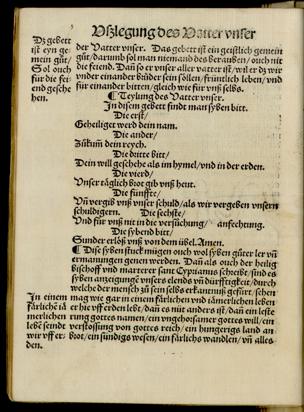 Vßlegung des Vatter vnser
Dz gebett
ist eyn ge
mein gůt/
Sol ouch
für die fei
end gesche
hen.
der Vatter vnser. Das gebett ist ein geistlich gemein
gůt/darumb sol man niemand des berauben/ouch nit
die feiend. Dañ so er vnser aller vatter ist/wil er dz wir
vnder einander brůder sein söllen/früntlich leben/vnd
für einander bitten/gleich wie für vnß selbs.
¶ Teylung des Vatter vnser.
In disem gebett findt man syben bitt.
Die erst/
Geheiliget werd dein nam.
Die ander/
Zůkum̃ dein reych.
Die dritte bitt/
Dein will geschehe als im hymel/vnd in der erden.
Die vierd/
Vnser täglich brot gib vnß heüt.
Die fünffte/
Vñ vergib vnß vnser schuld/als wir vergeben vnsern
schuldigern. Die sechste/
Vnd für vnß nit in die versůchung/ anfechtung.
Die sybend bitt/
Sunder erlöß vnß von dem übel. Amen.
¶ Dise syben stuck mügen ouch wol syben gůter ler vñ
ermanungen genen werden. Dañ als ouch der heilig
bischoff vnd marterer sant Cyprianus schreibt/sind es
syben anzeigungẽ vnsers elends vñ dürfftigkeit/durch
welche der mensch zů sein selbs erkantnuß gefürt/sehen
In einem mag wie gar in einem färlichen vnd iämerlichen leben
färlichẽ iä er hie vff erden lebt/dañ es nüt anders ist/dañ ein leste
merlichen rung gottes namen/ein vngehorsamer gottes will/ein
lebẽ seindt verstossung von gottes reich/ein hungerigs land an
wir vff er brot/ein sündigs wesen/ein färlichs wandlen/vñ alles
den.